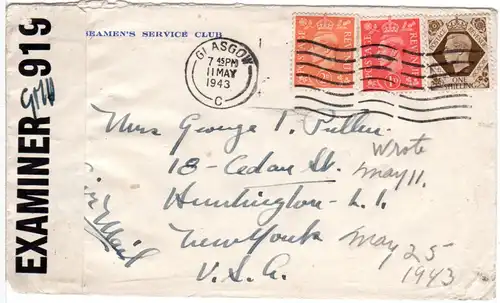 EXAMINER 919
EAMEN'S SERVICE CLUB
GLASGOW
7 45PM
11 MAY
1943
C
ONE
SHILLING
Mrs George T.
18 - Cedar St.
Huntington - L. I.
New York
U. S. A.
Air Mail
Wrote
May 11.
May 25
1943